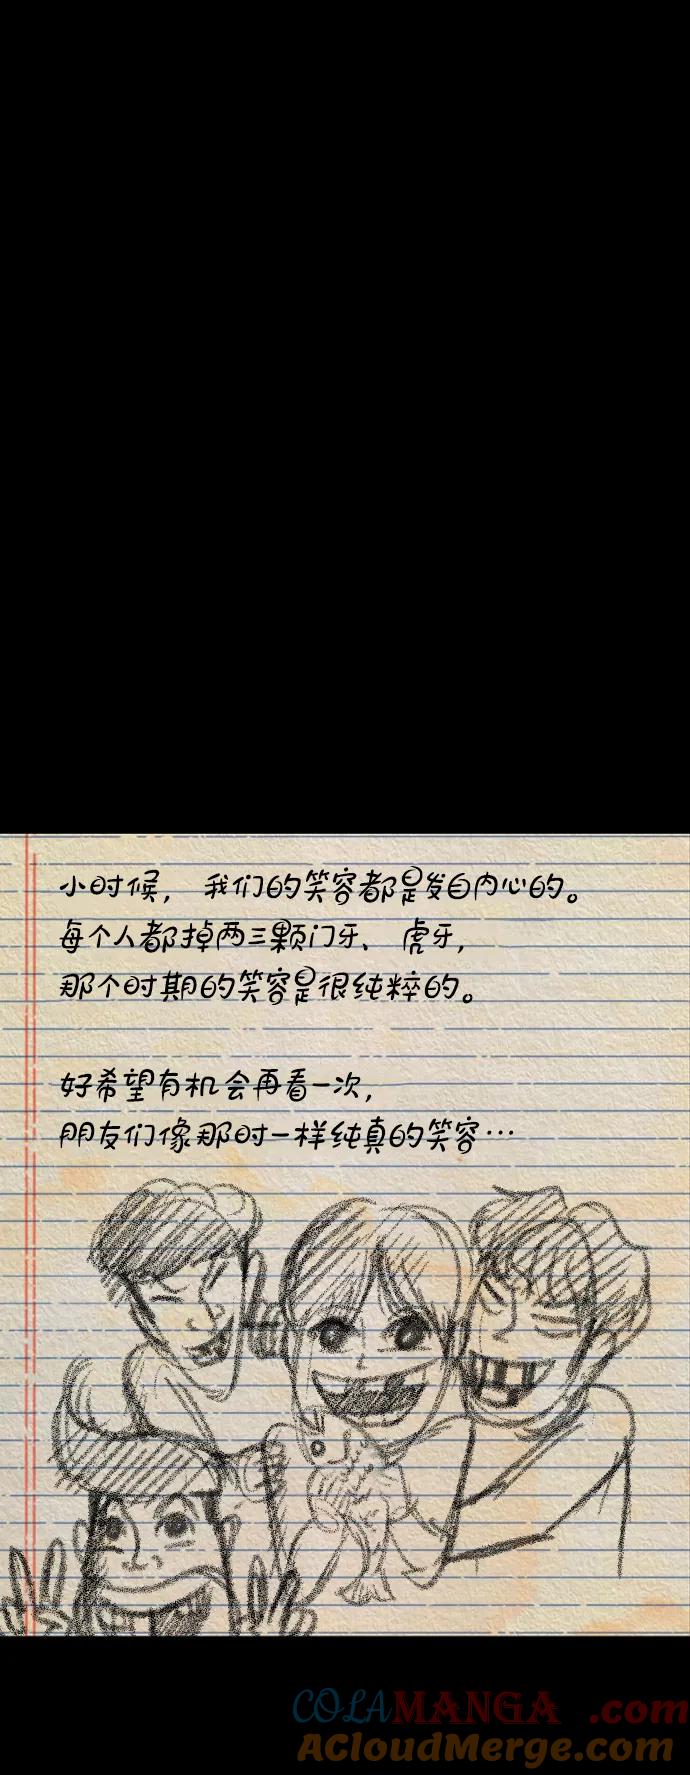 小时候，我们的笑容都是发自内心的。
每个人都掉两三颗门牙、虎牙，
那个时期的笑容是很纯粹的。
好希望有机会再看一次，
朋友们像那时一样纯真的笑容…
COLAMANGA.com
ACloudMerge.com